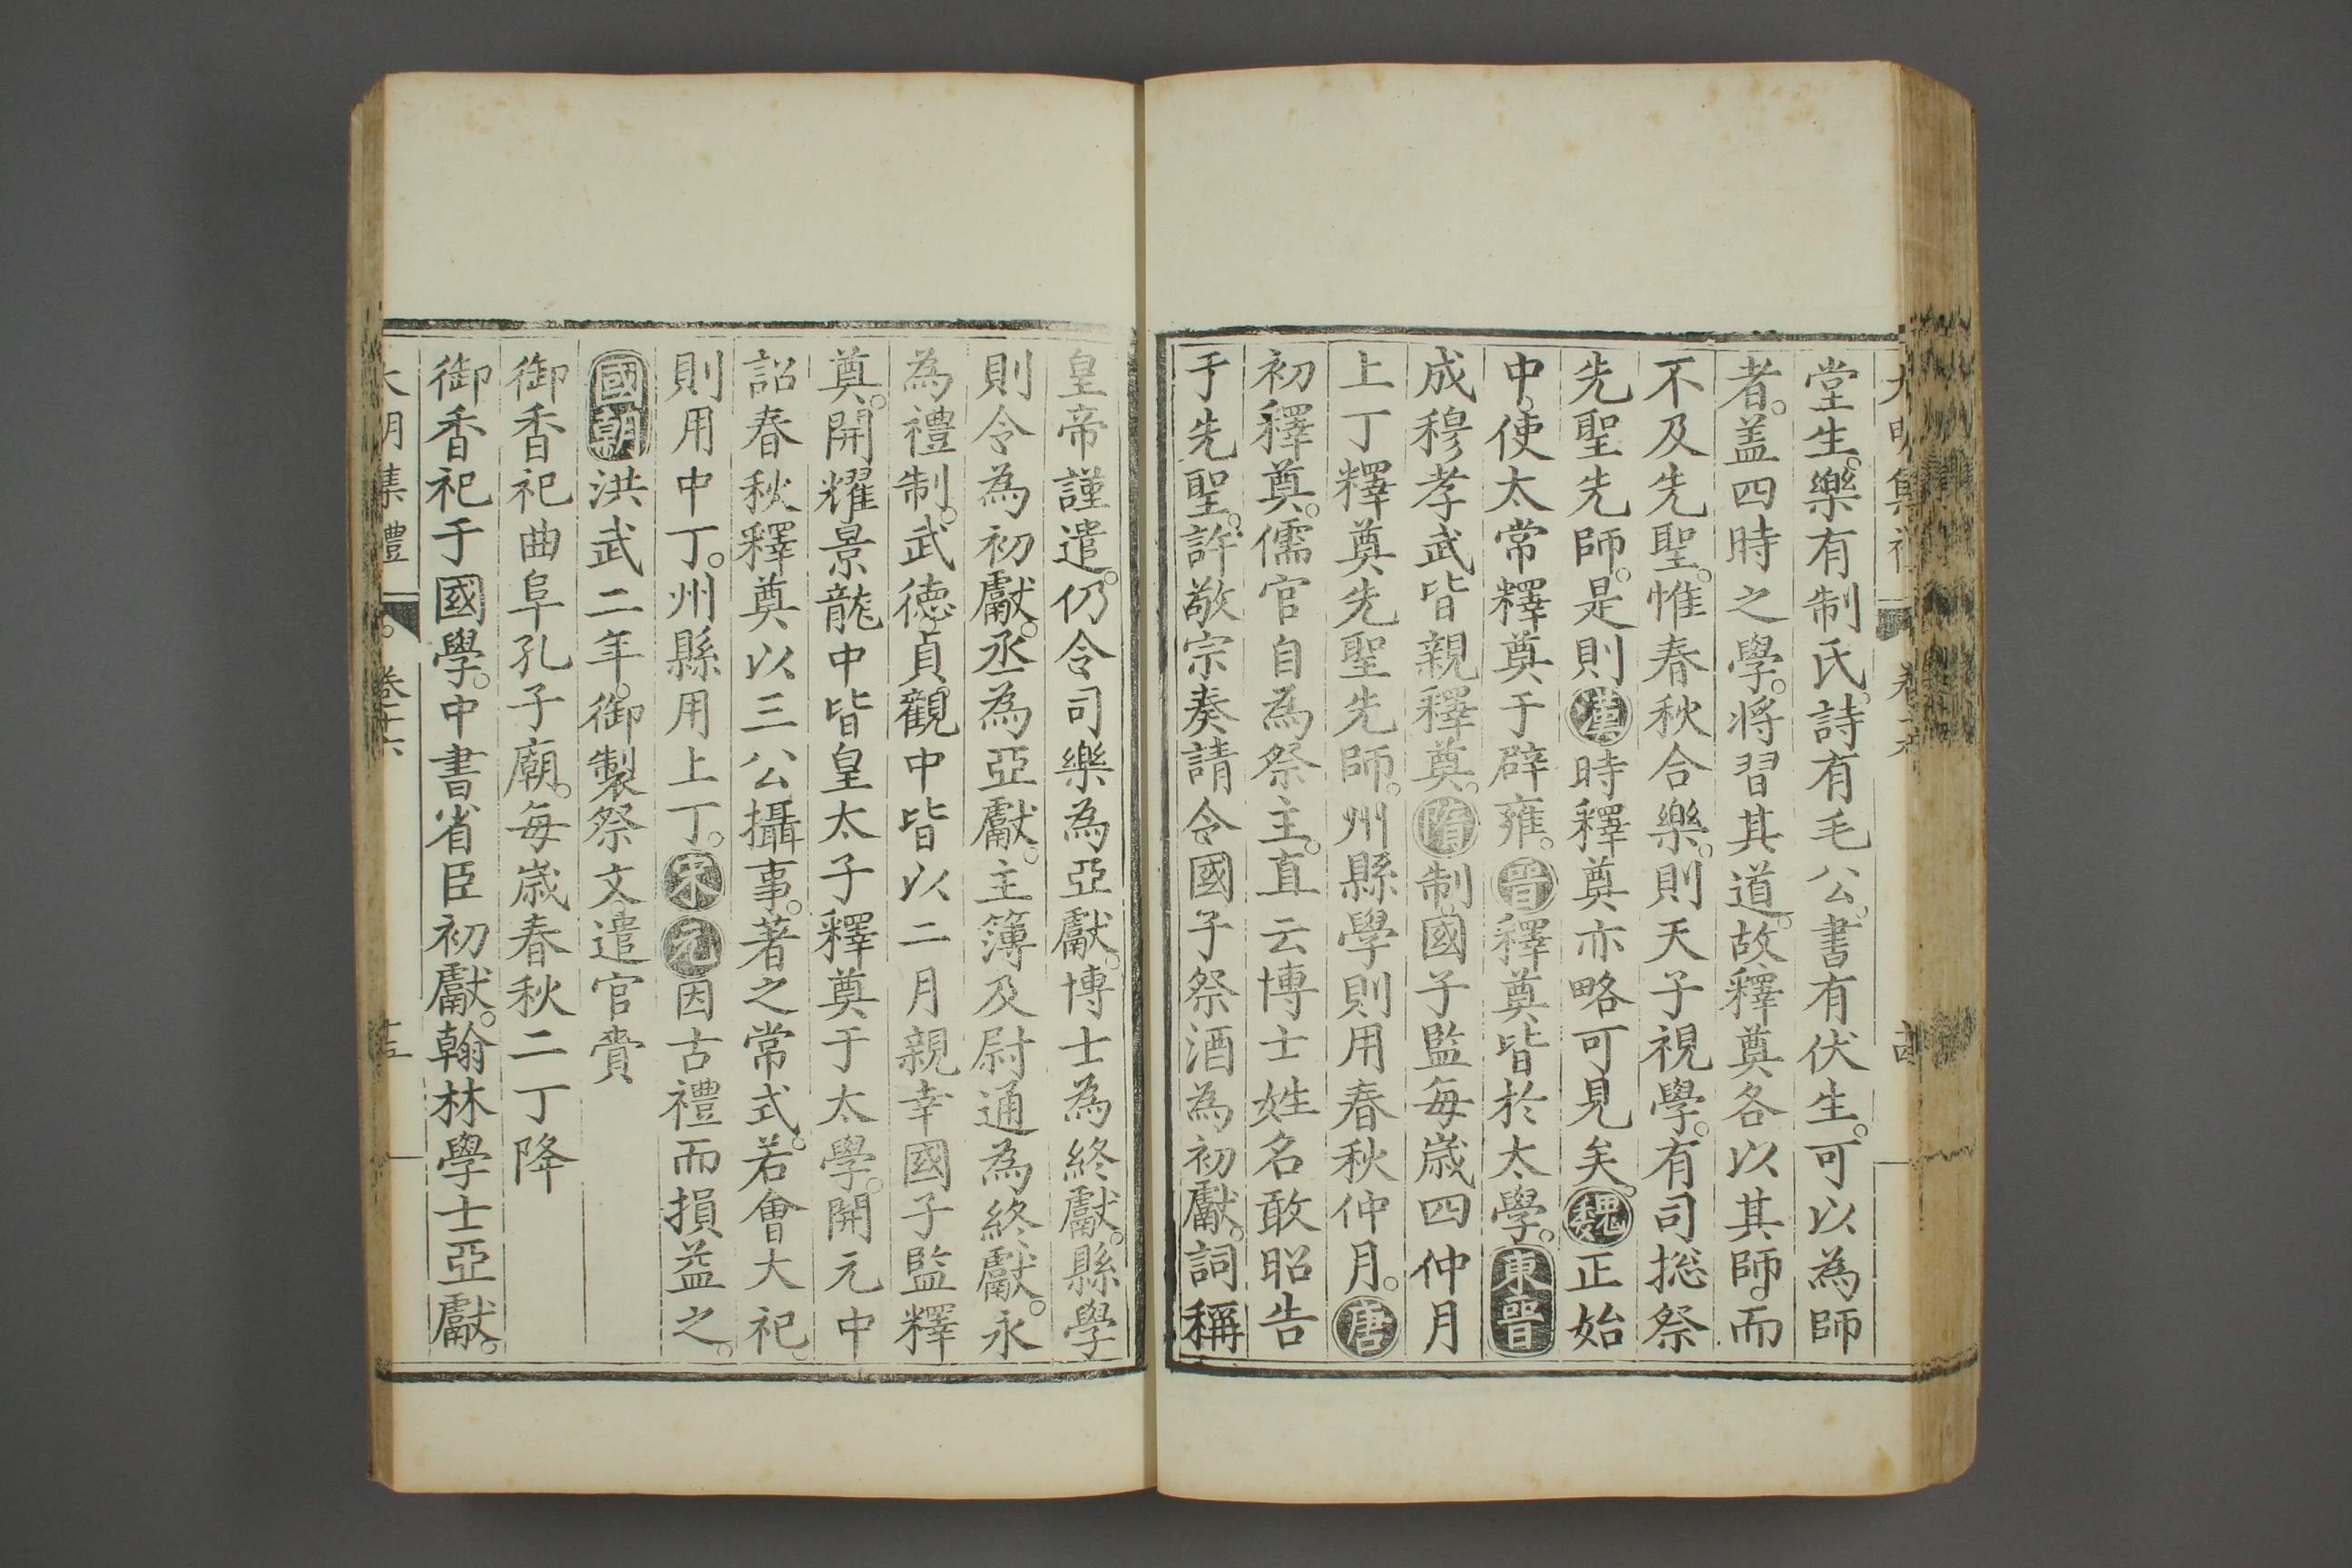 堂生。樂有制氏。詩有毛公。書有伏生。可以為師
者。盖四時之學。将習其道。故釋奠各以其師。而
不及先聖。惟春秋合樂。則天子視學。有司摠祭
先聖先師。是則漢時釋奠亦略可見矣。魏正始
中。使太常釋奠于辟雍。晋釋奠皆於太學。東晋
成穆孝武皆親釋奠。隋制。國子監每歲四仲月
上丁釋奠先聖先師。州縣學則用春秋仲月。唐
初釋奠。儒官自為祭主。直云博士姓名敢昭告
于先聖。許敬宗奏請令國子祭酒為初獻。詞稱
皇帝謹遣。仍令司樂為亞獻。博士為終獻。縣學
則令為初獻。丞為亞獻。主簿及尉通為終獻。永
為禮制。武德。貞觀中皆以二月親幸國子監釋
奠。開耀景龍中皆皇太子釋奠于太學。開元中
詔春秋釋奠以三公攝事。著之常式。若會大祀。
則用中丁。州縣用上丁。宋元因古禮而損益之。
國朝洪武二年。御製祭文。遣官賫
御香祀曲阜孔子廟。每歲春秋二丁降
御香祀于國學。中書省臣初獻。翰林學士亞獻。
大明集禮 卷十六